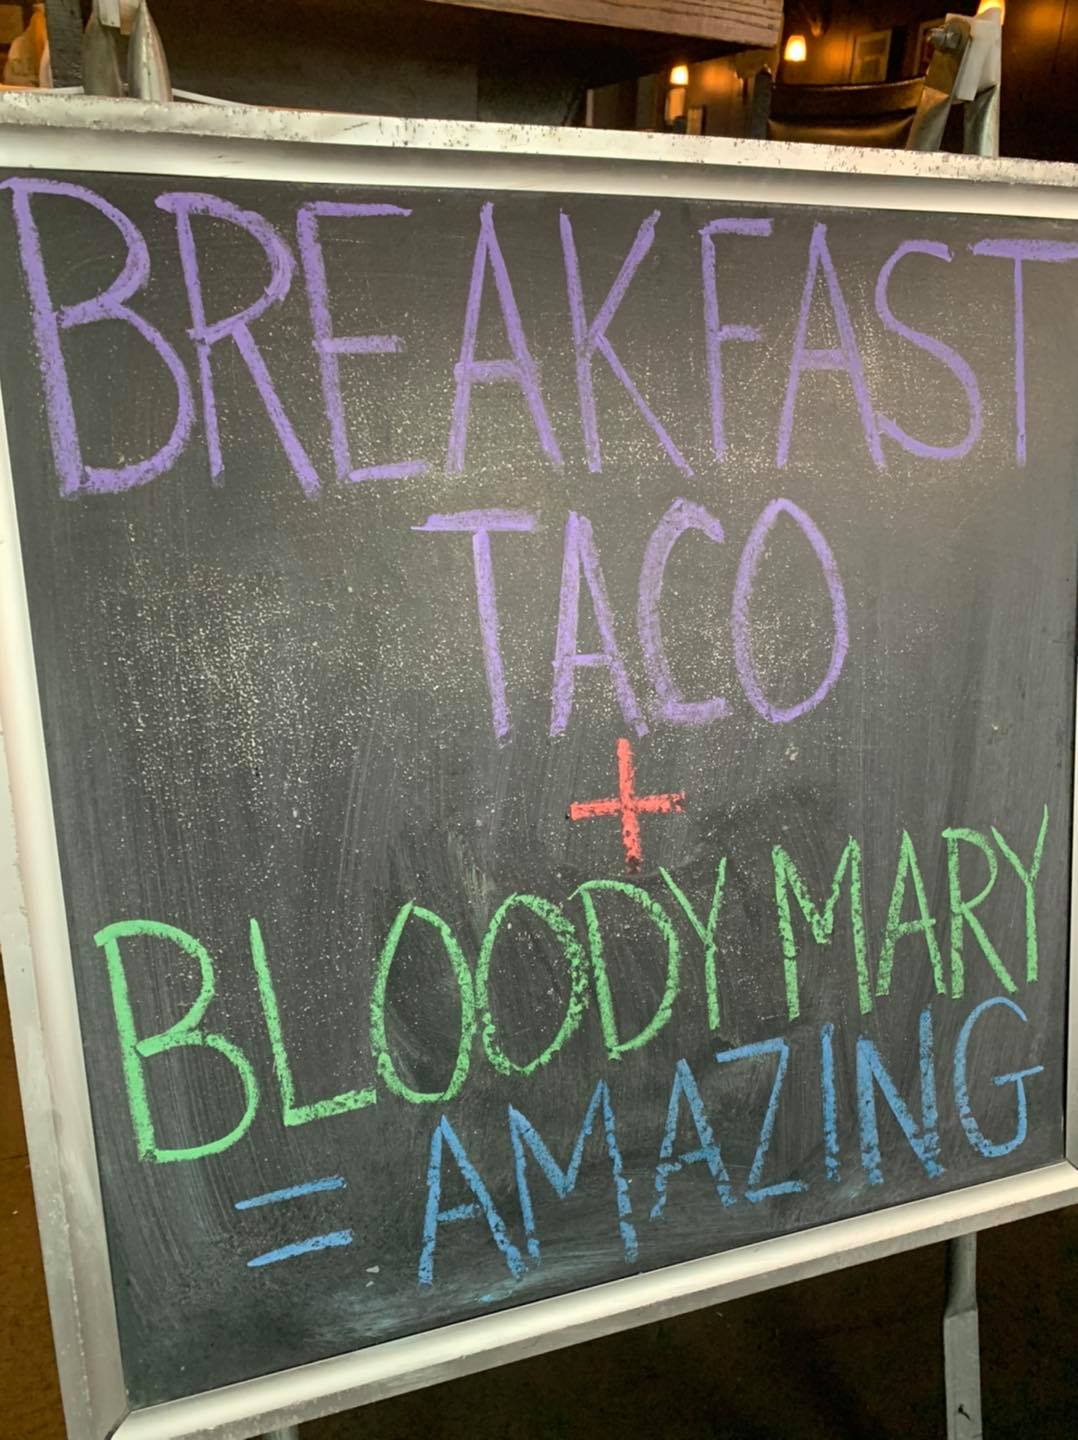 BREAKFAST
TACO
+
BLOODY MARY
= AMAZING